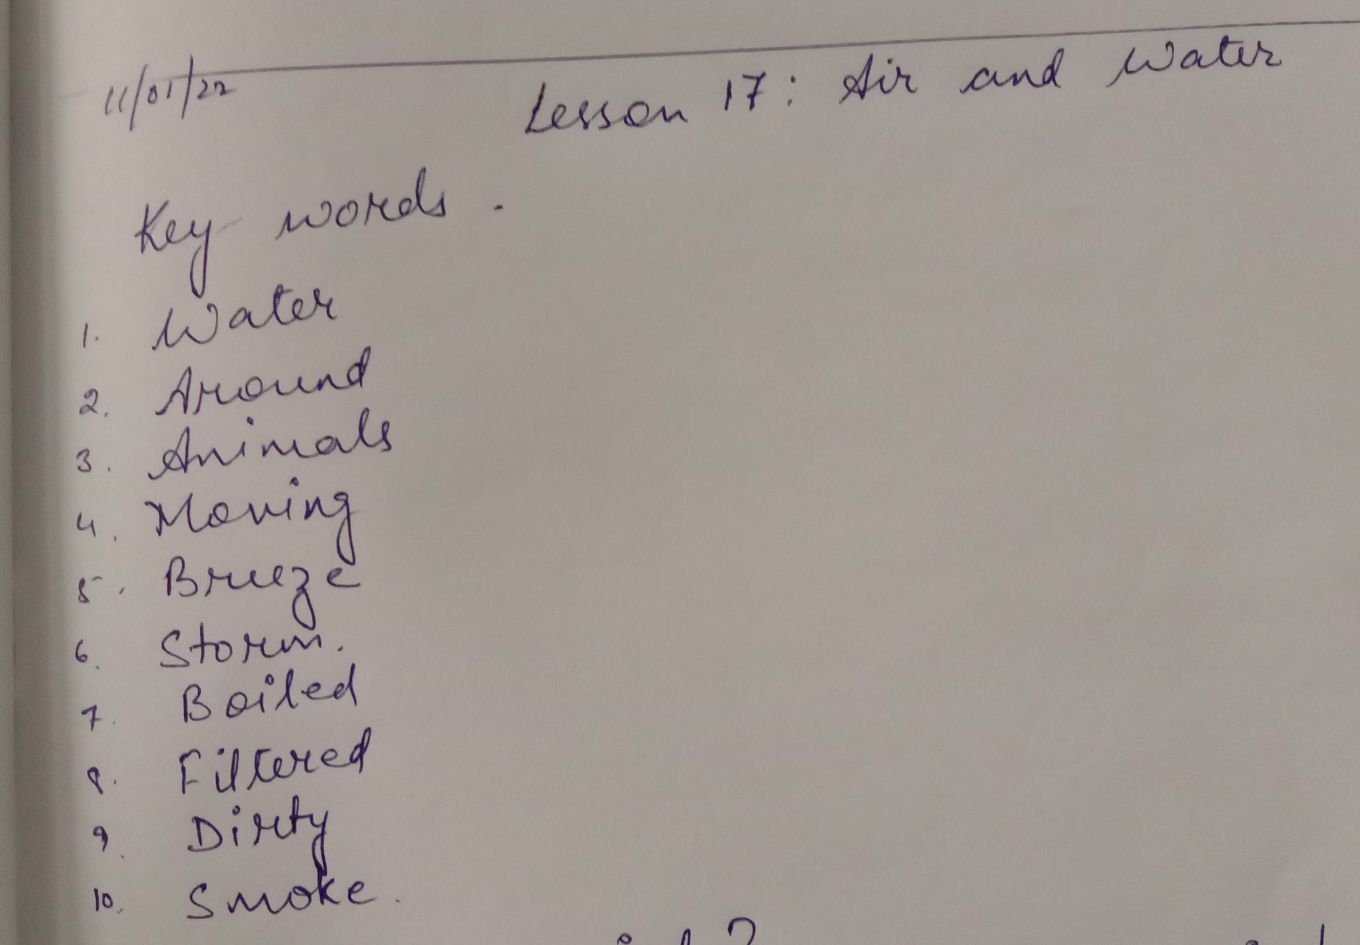 11/01/22
Lesson 17: Air and Water
Key words.
1. Water
2. Around
3. Animals
4. Moving
5. Breeze
6. Storm.
7. Boiled
8. Filtered
9. Dirty
10. Smoke.